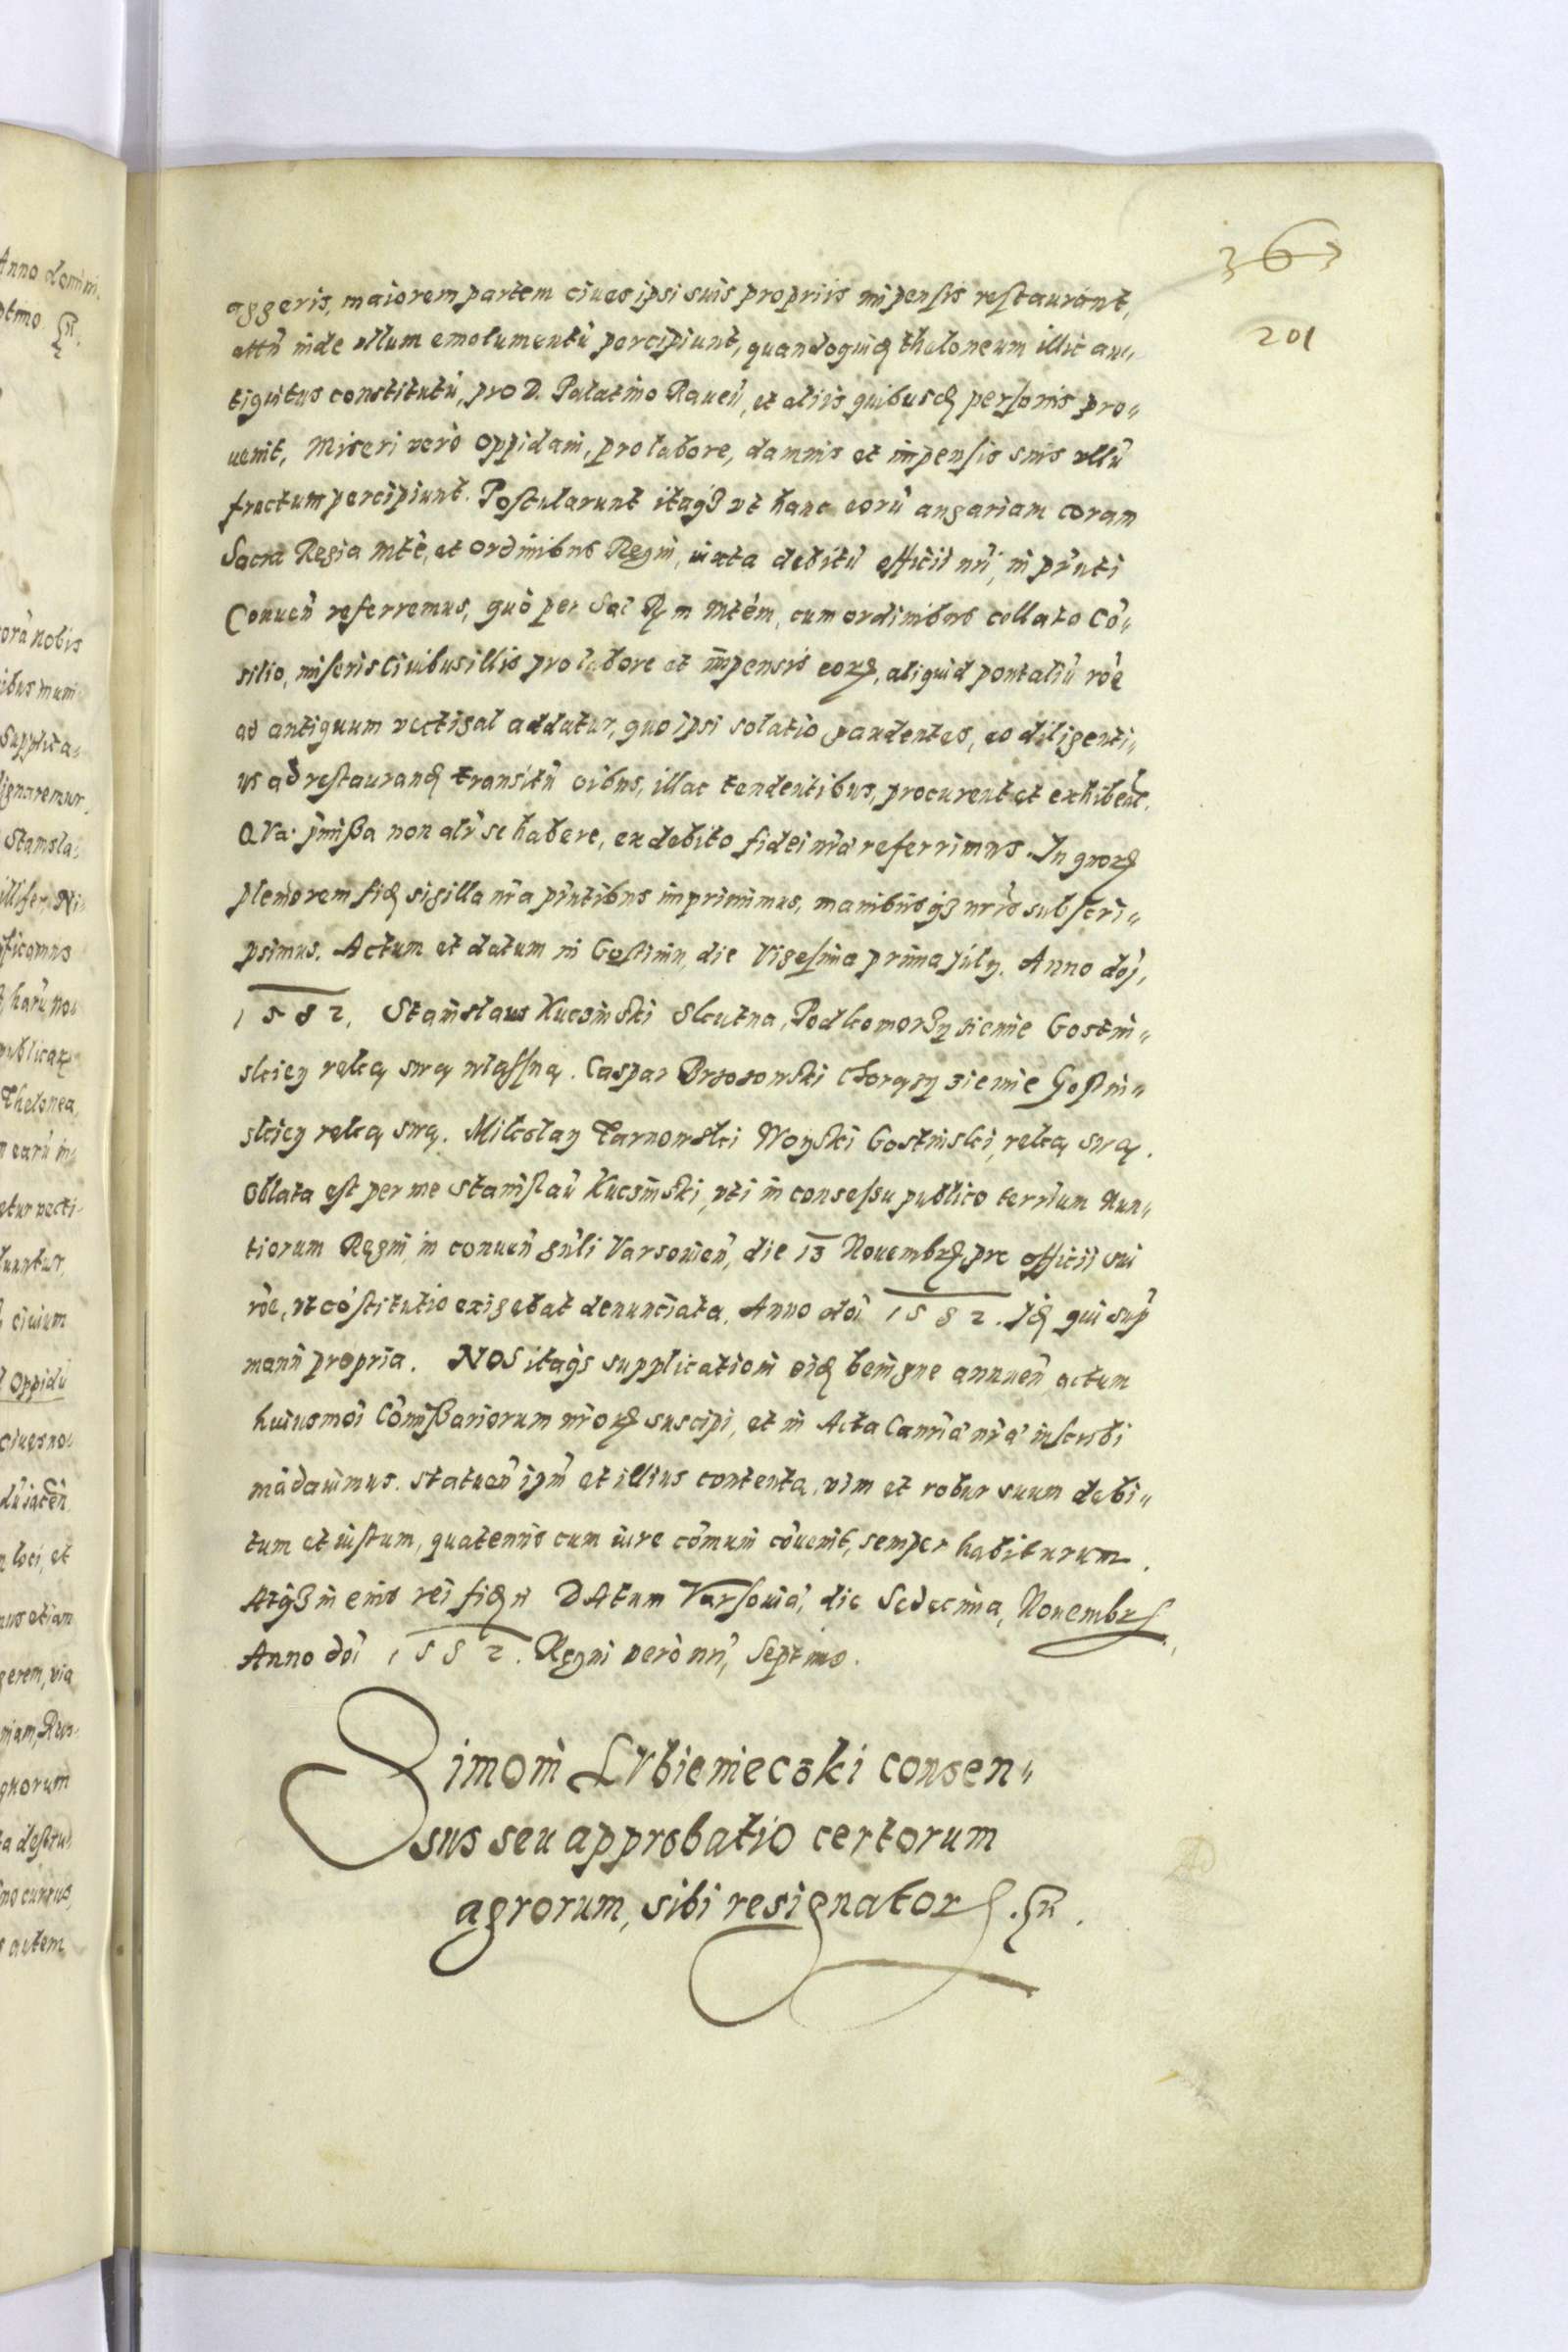 363
201
aggeris, maiorem partem ciues ipsi suis propriis inpensis restaurant,
attñ inde ullum emolumentũ percipiunt, quandoquidẽ theloneum illic an„
tiquitus constitutũ, pro D. Palatino Rauen̄, et aliis quibusdã personis pro„
uenit, Miseri verò oppidani, pro labore, damnis et impensis suis ullũ
fructum percipiunt. Postularunt itaq3 vt hanc eorũ angariam coram
Sacra Regia Mtẽ, et ordinibus Regni, iuxta debitũ officii nr̃i, in pr̃nti
Conuen̄ referremus, quò per Sac̃ R. m Mtẽm, cum ordinibus collato cõ„
silio, miseris ciuibus illis pro labore et impensis eorũ, aliquid pontaliũ rõe
ad antiquum vectigal addatur, quo ipsi solatio gaudentes, eo diligenti„
us ad restaurandũ transitũ oĩbus, illac tendentibus, procurent et exhibent.
QVæ p̃mißa non alr̃ se habere, ex debito fidei nr̃æ referrimus. In quorũ
pleniorem fidẽ sigilla nr̃a pr̃ntibus imprimimus, manibusq3 nr̃is subscri„
psimus. Actum et datum in Gostinin, die Vigesima prima Julij. Anno doĩ,
1582, Stanislaus Kucsinski Slcutna, Podkomorży ziemie Gostin„
skiey ręką swą własną. Caspar Brzozowski Chorąży ziemie Gostin„
skiey ręką swą. Mikolay Tarnowski Woyski Gostinski, ręką swą.
Oblata est per me Stanislaũ Kucsinski, vti in consessu publico terr̃ium Nun„
tiorum Regni, in conuen̄ gñli Varsouien̄, die 13 Nouembrẽ, pre officii sui
rõe, vt cõstitutio exigebat denunciata, Anno doĩ 1582. Idẽ qui supr̃
manu propria. NOS itaq3 supplicationi eidẽ benigne annuen̄ actum
huiusmõi Cõmißariorum nr̃orũ suscipi, et in Acta Canr̃iæ nr̃æ inscribi
mãdauimus. statuen̄ ipm̃ et illius contenta, vim et robur suum debi„
tum et iustum, quatenus cum iure cõmuni cõuenit, semper habiturum.
Atq3 in eius rei fidẽ DAtum Varsouiæ, die Sedecima, Nouembrẽ,
Anno doĩ 1582. Regni verò nr̃i, Septimo.
Simoni LVbieniecski consen„
sus seu approbatio certorum
agrorum, sibi resignatorũ. &c.